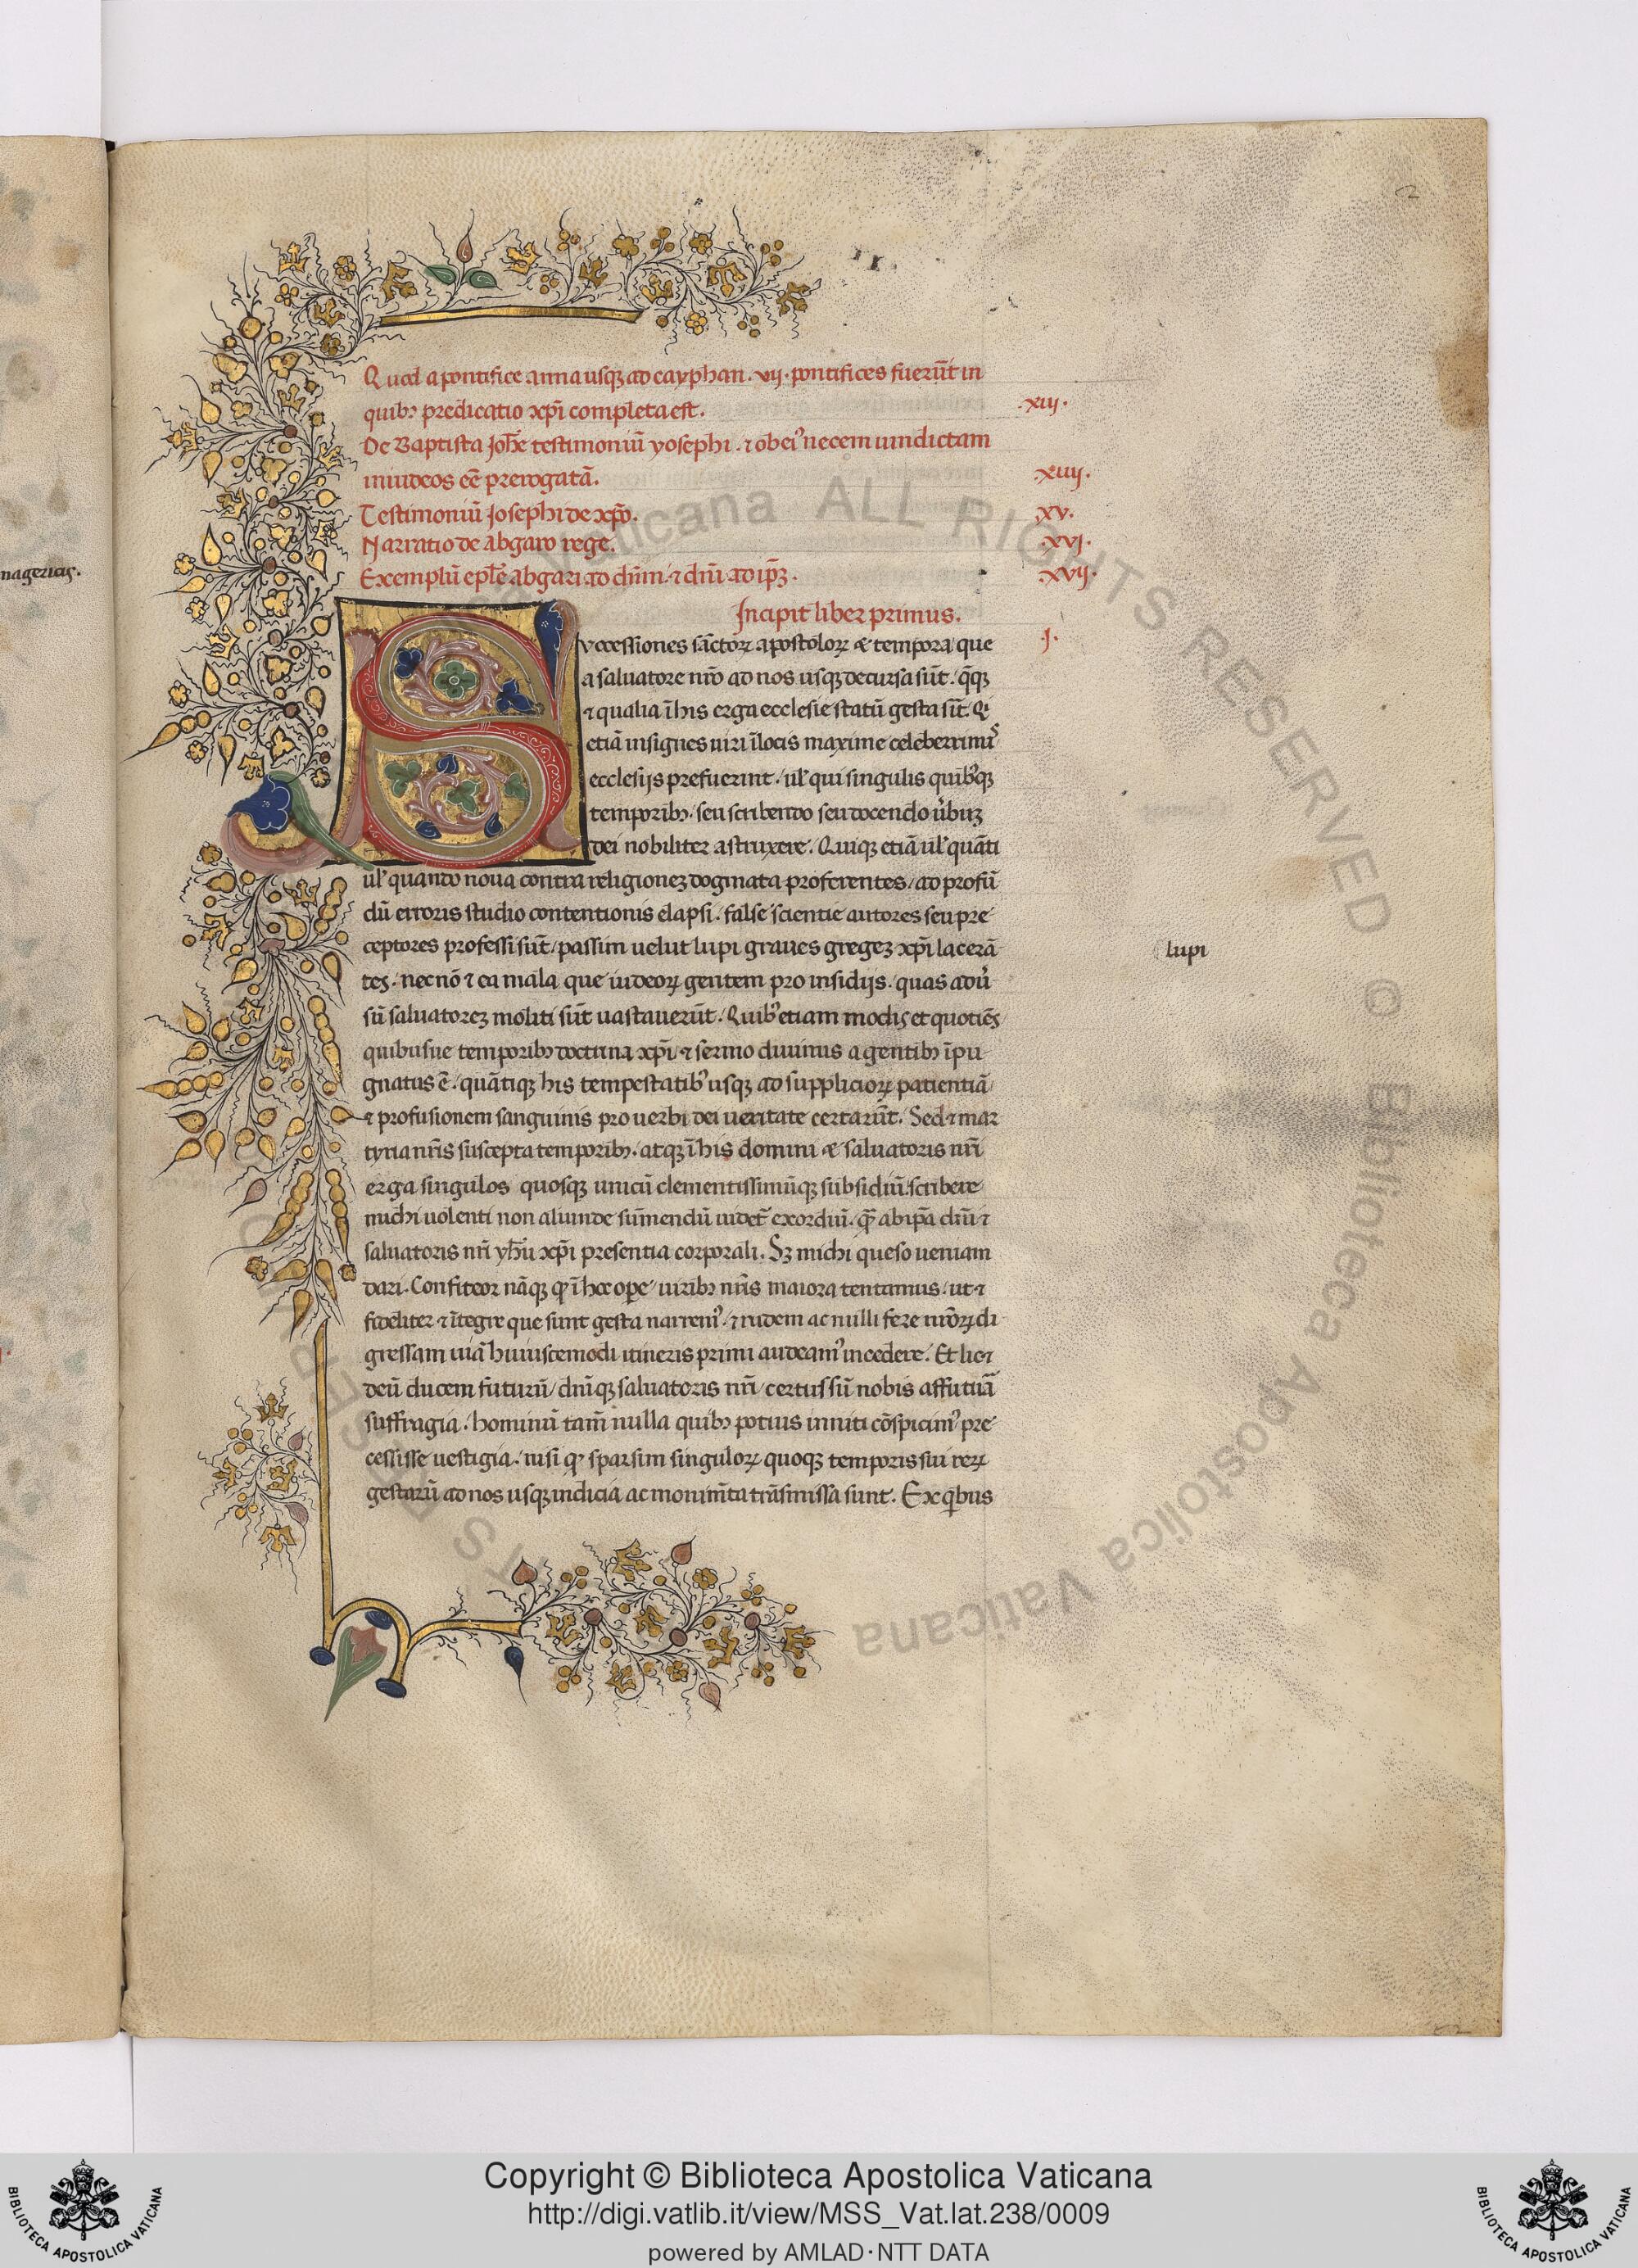 2
Quod a pontifice anna usqꝫ ad cayphan. vij. pontifices fuerūt in
quibꝫ predicatio xp̄i completa est. .xiij.
De Baptista Joh̄e testimoniū yosephi. ⁊ ob eiꝰ necem uindictam
in iudeos eē prerogatā. .xiiij.
Testimoniū Josephi de xp̄o. .xv.
Narratio de abgaro rege. .xvj.
Exemplū ep̄le abgari ad dn̄m. ⁊ dn̄i ad ip̄ꝫ. .xvij.
Incipit liber primus.
Svccessiones sāctoꝝ apostoloꝝ & tempora que j.
a saluatore nr̄o ad nos usqꝫ decursa sūt. q̄qꝫ
⁊ qualia ī his erga ecclesie statū gesta sūt. Qⁱ
etiā insignes uiri ī locis maxime celeberrimis
ecclesijs prefuerint. ul' qui singulis quibꝰqꝫ
temporibꝫ. seu scribendo seu docendo u̓buꝫ
dei nobiliter astruxere. Quiqꝫ etiā ul' quāti
ul' quando noua contra religioneꝫ dogmata proferentes / ad profū
dū erroris studio contentionis elapsi. false scientie autores seu pre
ceptores professi sūt / passim uelut lupi graues gregeꝫ xp̄i lacerā
tes. necnō ⁊ ea mala que iudeoꝝ gentem pro insidijs. quas adu̓
sū saluatoreꝫ moliti sūt uastauerūt. Quibꝰ etiam modis et quotiēs
lupi
quibusue temporibꝫ doctrina xp̄i ⁊ sermo diuinus a gentibꝫ īpu
gnatus ē. quātiqꝫ his tempestatibꝰ usqꝫ ad supplicioꝝ patientiā
⁊ profusionem sanguinis pro uerbi dei ueritate certarūt. Sed ⁊ mar
tyria nr̄is suscepta temporibꝫ. atqꝫ ī his domini & saluatoris nr̄i
erga singulos quosqꝫ unicū clementissimūqꝫ subsidiū. scribere
michi uolenti non aliunde sumendū uidet̄ exordiū. q̄ꝫ ab ip̄a dn̄i ⁊
saluatoris nr̄i yh̄u xp̄i presentia corporali. Sꝫ michi queso ueniam
dari. Confiteor nāqꝫ qꝫ ī hoc ope / uiribꝫ nr̄is maiora tentamus. ut ⁊
fideliter ⁊ ītegre que sunt gesta narremꝰ. ⁊ rudem ac nulli fere nr̄oꝝ di
gressam uiā huiuscemodi itineris primi audeamꝰ incedere. Et licꝫ
deū ducem futurū / dn̄iqꝫ saluatoris nr̄i / certus sū nobis affuturā
suffragia. hominū tam̄ nulla quibꝫ potius inniti cōspicimꝰ pre
cessisse uestigia. nisi qꝫ sparsim singuloꝝ quoqꝫ temporis sui reꝝ
gestarū ad nos usqꝫ indicia ac monim̄ta trāsmissa sunt. Ex qⁱbus
Copyright © Biblioteca Apostolica Vaticana
http://digi.vatlib.it/view/MSS_Vat.lat.238/0009
powered by AMLAD·NTT DATA
BIBLIOTECA APOSTOLICA VATICANA
BIBLIOTECA APOSTOLICA VATICANA